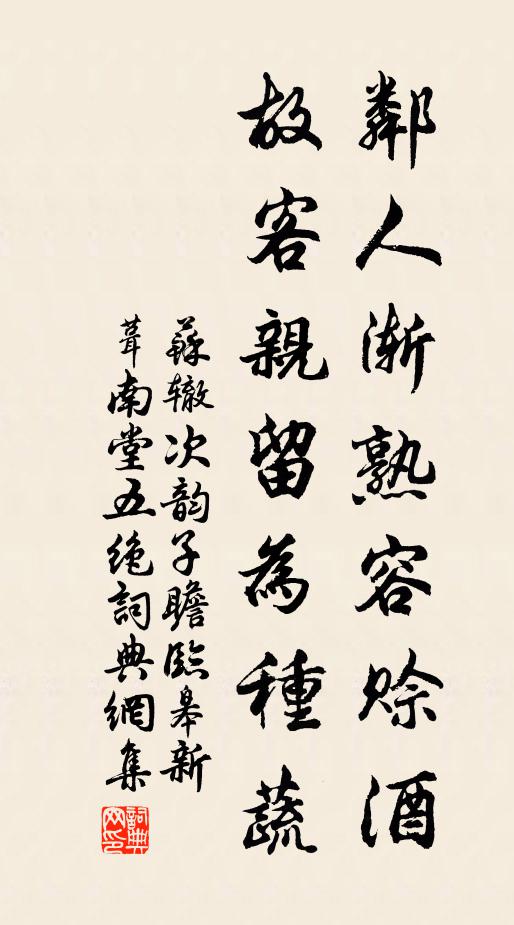 鄰人漸熟容賒酒
故客親留為種蔬
蘇辙次韵子瞻臨皋新
葺南堂五绝詞典網集
詞典网印